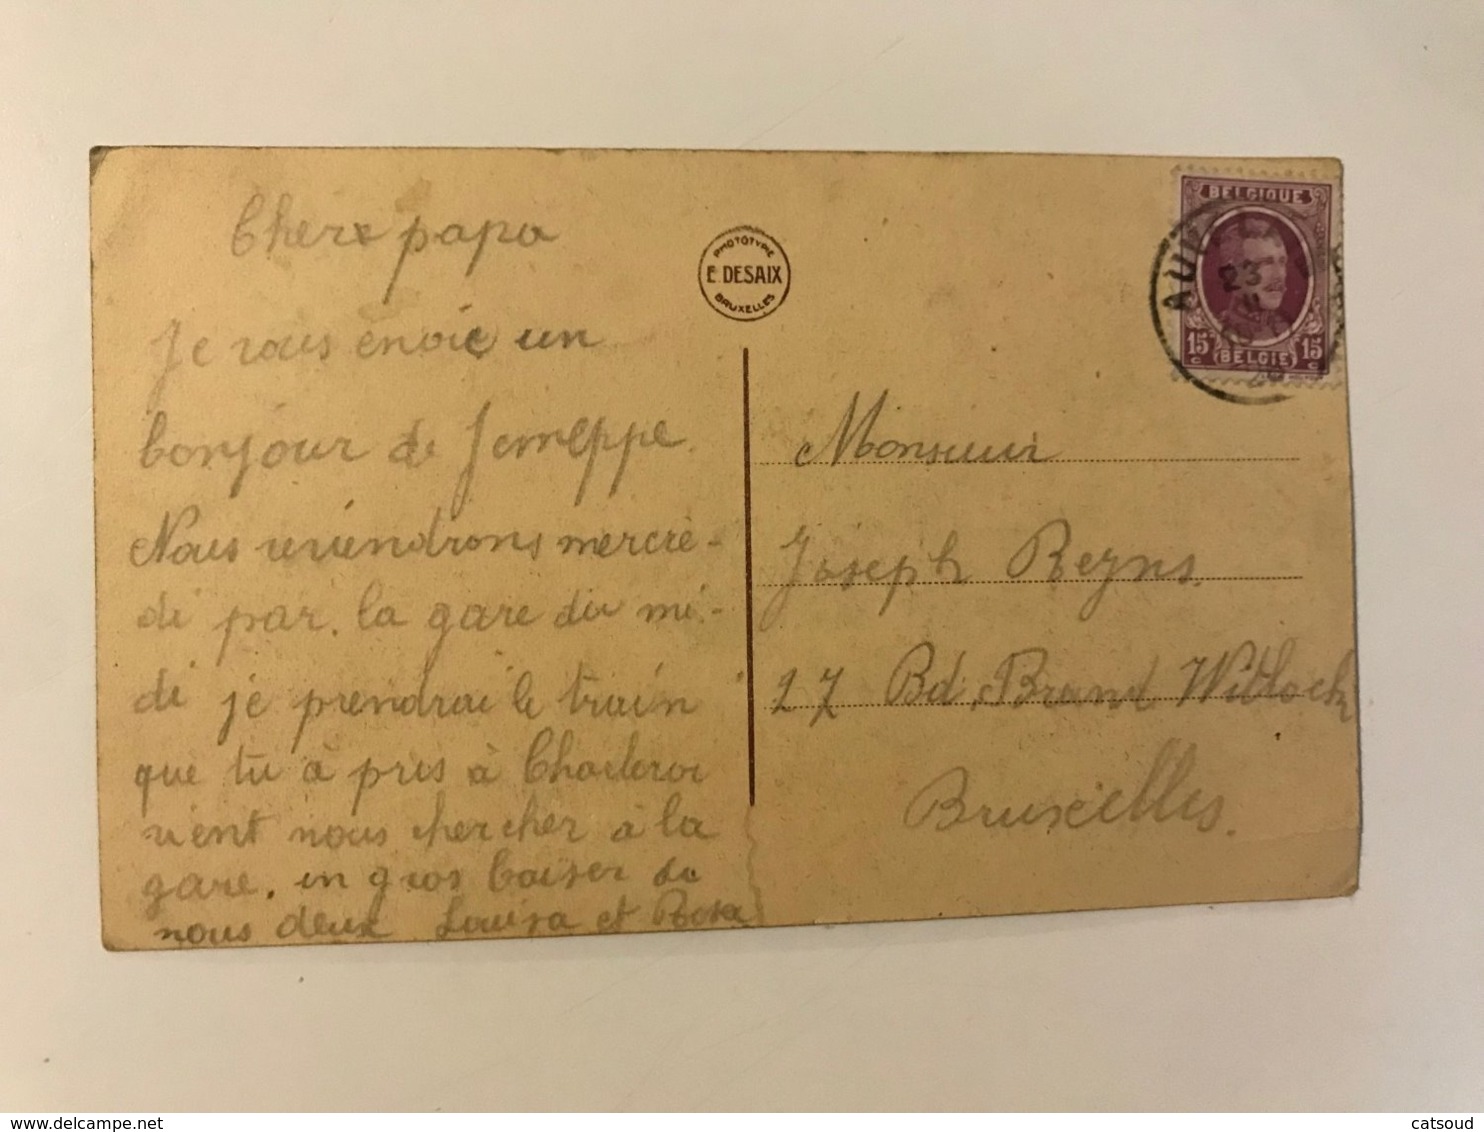 Cher papa
Je vous envoie un
bonjour de Jemeppe.
Nous reviendrons mercre-
di par la gare du mi-
di je prendrai le train
que tu à pris à Charleroi
vient nous chercher à la
gare. un gros baiser de
nous deux Louisa et Rosa
PHOTOTYPIE
E. DESAIX
BRUXELLES
BELGIQUE
23
15 c BELGIE 15 c
Monsieur
Joseph Reyns.
27 Bd. Brand Witlock
Bruxelles.
www.delcampe.net
catsoud